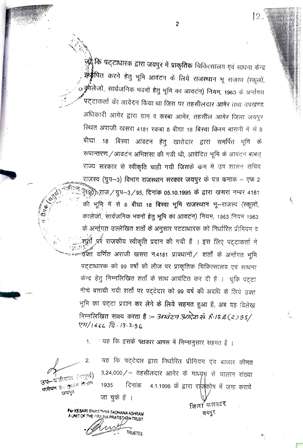 2
12.
कि पट्टाधारक द्वारा जयपुर में प्राकृतिक चिकित्सालय एवं साधना केन्द्र
स्थापित करने हेतु भूमि आवंटन के लिये राजस्थान भू राजस्व (स्कूलों,
कॉलेजों, सार्वजनिक भवनों हेतु भूमि का आवंटन) नियम, 1963 के अन्तर्गत
पट्टाकर्ता को आवेदन किया था जिस पर तहसीलदार आमेर तथा उपखण्ड
अधिकारी आमेर द्वारा ग्राम व कस्बा आमेर, तहसील आमेर जिला जयपुर
स्थित अराजी खसरा 4181 रकबा 8 बीघा 18 बिस्वा किस्म में से 8
बीघा 18 बिस्वा आवंटन हेतु खातेदार द्वारा समर्पित भूमि के
रूपान्तरण/आवंटन अभिशंषा की गयी थी, आवेदित भूमि के आवंटन बाबत
राज्य सरकार से स्वीकृति चाही गयी जिसके क्रम में उप शासन सचिव
राजस्व (ग्रुप-3) विभाग राजस्थान सरकार जयपुर के पत्र क्रमांक - एफ 2
राज/ग्रुप-3/95, दिनांक 05.10.1995 के द्वारा खसरा नम्बर 4181
की भूमि में से 8 बीघा 18 बिस्वा भूमि राजस्थान भू-राजस्व (स्कूलों,
कालेजों, सार्वजनिक भवनों हेतु भूमि का आवंटन) नियम, 1963 नियम 1963
के अन्तर्गत उल्लेखित शर्तों के अनुसार पट्टाधारक को निर्धारित प्रीमियम व
शर्तों पर राजकीय स्वीकृति प्रदान की गयी है । इस लिए पट्टाकर्ता ने
उक्त वर्णित अराजी खसरा नं.4181 प्रावधानों/ शर्तों के अन्तर्गत भूमि
पट्टाधारक को 99 वर्षों की लीज पर प्राकृतिक चिकित्सालय एवं साधना
केन्द्र हेतु निम्नलिखित शर्तों के साथ आवंटित कर दी है । चूंकि पट्टा
नीचे बतायी गयी शर्तों पर पट्टेदार को 99 वर्ष की अवधि के लिये उक्त
भूमि का पट्टा प्रदान कर लेने के लिये सहमत हुआ है, अब यह विलेख
निम्नलिखित साक्ष्य करता है :-
1. यह कि इसके पक्षकार आपस में निम्नानुसार सहमत हैं ।
2. यह कि पट्टेदार द्वारा निर्धारित प्रीमियम एवं बाबत कीमत
3,24,000/- तहसीलदार आमेर के माध्यम से चालान संख्या
1935 दिनांक 4.1.1996 के द्वारा राजकोष में जमा कराये
जा चुके हैं ।
जिला कलक्टर
जयपुर
TRUSTEE